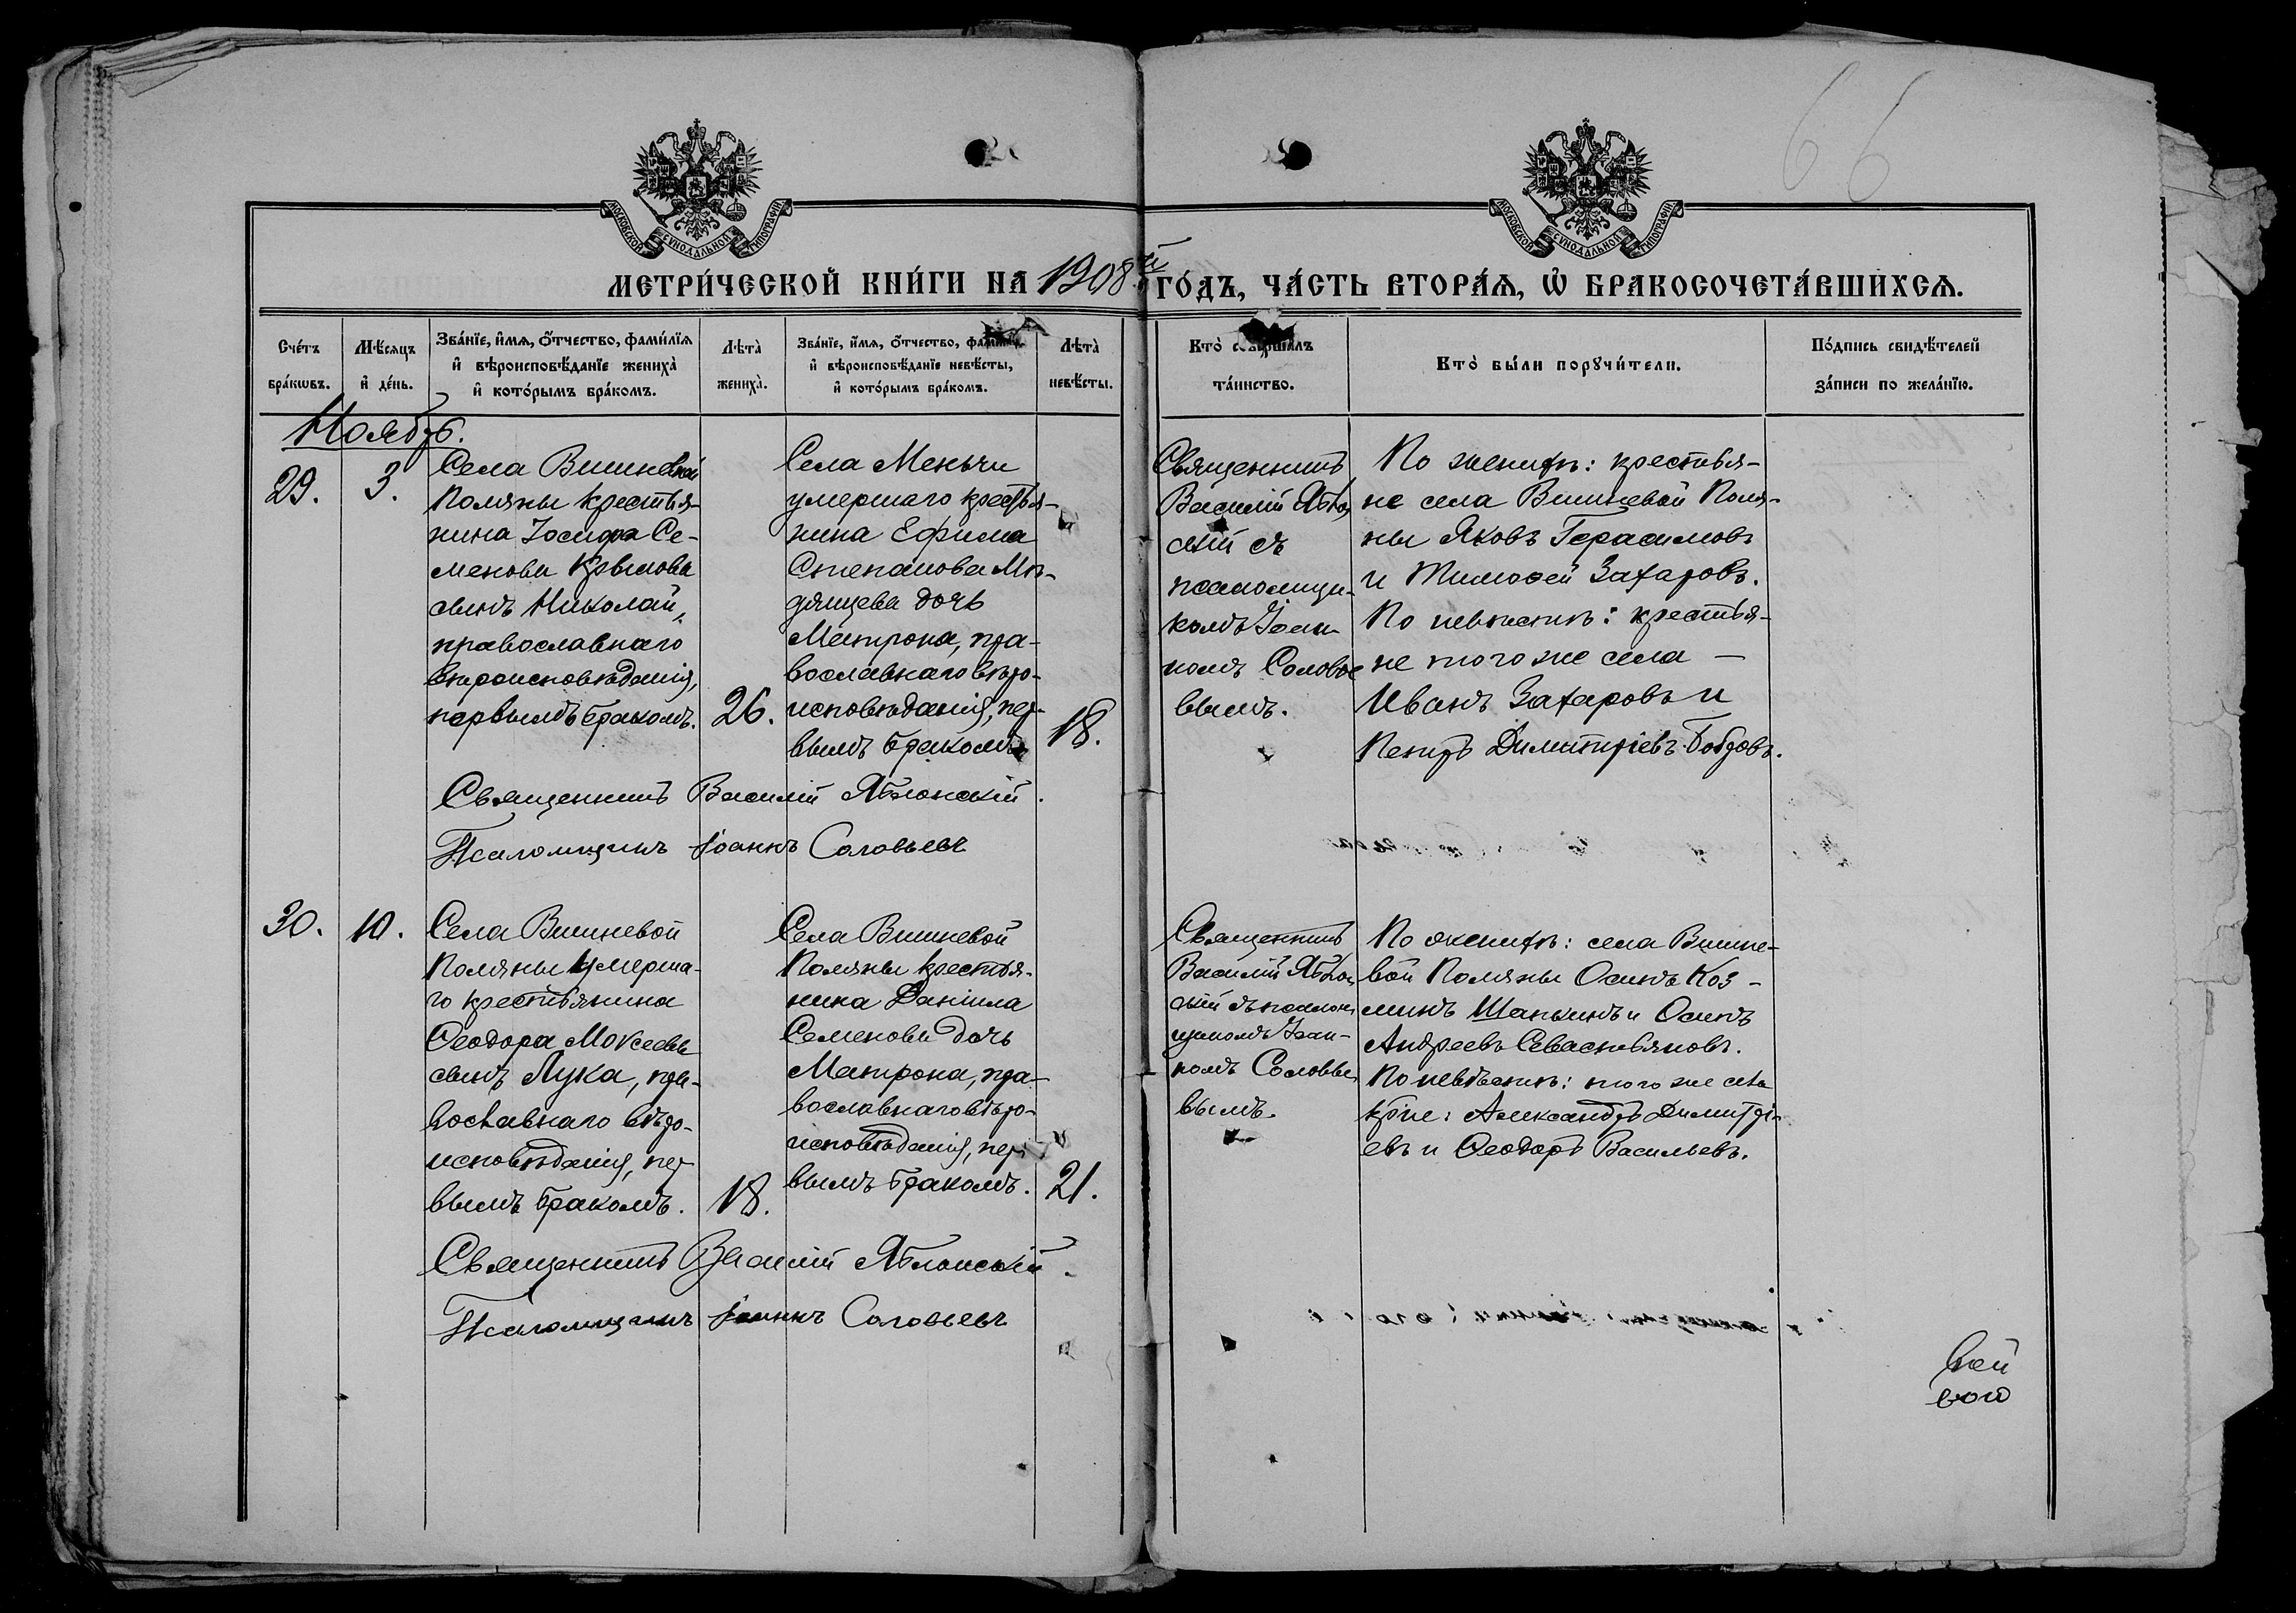 66
МОСКОВСКОЙ СѴНОДАЛЬНОЙ ТИПОГРАФІИ
МОСКОВСКОЙ СѴНОДАЛЬНОЙ ТИПОГРАФІИ
МЕТРИ́ЧЕСКОЙ КНИ́ГИ НА 1908й ГО́ДЪ, ЧА́СТЬ ВТОРА́Ѧ, Ѡ҆ БРАКОСОЧЕТА́ВШИХСѦ.
Сче́тъ бра́кѡвъ.
Мѣ́сѧцъ и҆ де́нь.
Зва́нїе, и҆́мѧ, ѻ҆́тчество, фами́лїѧ и҆ вѣроисповѣ́данїе жениха̀ и҆ кото́рымъ бра́комъ.
Лѣта̀ жениха̀.
Зва́нїе, и҆́мѧ, ѻ҆́тчество, и҆ вѣроисповѣ́данїе невѣ́сты, и҆ кото́рымъ бра́комъ.
Лѣта̀ невѣ́сты.
Кто̀ таинство.
Кто̀ бы́ли порꙋчи́тели.
По́дпись свидѣ́телей за́писи по жела́нїю.
Ноябрь.
29.
3.
Села Вишневой
Поляны крестья-
нина Іосифа Се-
менова Крымова
сынъ Николай,
православнаго
вѣроисповѣданія,
первымъ бракомъ.
26.
Села Меньчи
умершаго крестья-
нина Ефима
Степанова
дочь
Матрона, пра-
вославнаго вѣро-
исповѣданія, пер-
вымъ бракомъ
18.
Священникъ
Василій Ябло
скій съ
псаломщи-
комъ Іоан-
номъ Соловье
вымъ.
По женихѣ: крестья-
не села Вишневой Поля-
ны Яковъ Герасимовъ
и Тимоѳей Захаровъ.
По невѣстѣ: крестья-
не того же села —
Иванъ Захаровъ и
Петръ Димитріевъ Бобровъ.
Священникъ Василій Яблонскій.
Псаломщикъ Іоаннъ Соловьевъ
30.
10.
Села Вишневой
Поляны умерша-
го крестьянина
Ѳеодора Мокеева
сынъ Лука, пра-
вославнаго вѣро-
исповѣданія, пер-
вымъ бракомъ.
18.
Села Вишневой
Поляны крестья-
нина Даніила
Семенова дочь
Матрона, пра-
вославнаго вѣро-
исповѣданія, пер-
вымъ бракомъ.
21.
Священникъ
Василій Ябло
скій съ псалом
щикомъ Іоан-
номъ Соловье
вымъ.
По женихѣ: села Вишне-
вой Поляны Осипъ Коз-
минъ Шанинъ и Осипъ
Андреевъ Севастьяновъ.
По невѣстѣ: того же села
кр-не: Александръ Димитрі-
евъ и Ѳеодоръ Васильевъ.
Священникъ Василій Яблонскій.
Псаломщикъ Іоаннъ Соловьевъ